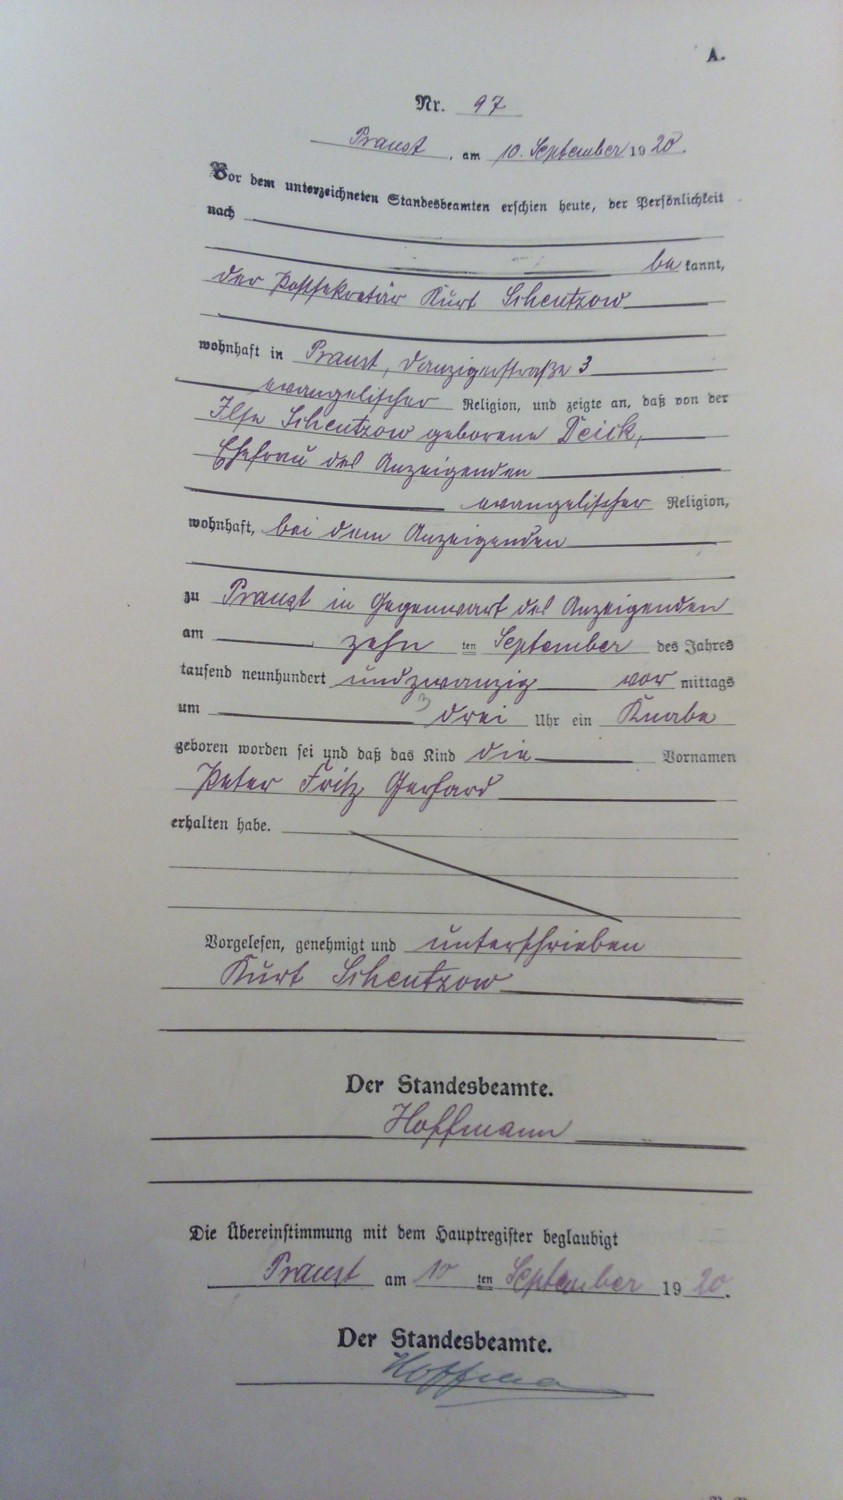 A.
Nr. 97
Praust, am 10. September 1920.
Vor dem unterzeichneten Standesbeamten erschien heute, der Persönlichkeit
nach
be kannt,
der Postsekretär Kurt Schentzow
wohnhaft in Praust, Danzigerstraße 3
evangelischer Religion, und zeigte an, daß von der
Ilse Schentzow geborene Deick,
Ehefrau des Anzeigenden
evangelischer Religion,
wohnhaft, bei dem Anzeigenden
zu Praust in Gegenwart des Anzeigenden
am zehn ten September des Jahres
tausend neunhundert undzwanzig vor mittags
um drei Uhr ein Knabe
geboren worden sei und daß das Kind die Vornamen
Peter Fritz Gerhard
erhalten habe.
Vorgelesen, genehmigt und unterschrieben
Kurt Schentzow
Der Standesbeamte.
Hoffmann
Die Übereinstimmung mit dem Hauptregister beglaubigt
Praust am 10 ten September 1920.
Der Standesbeamte.